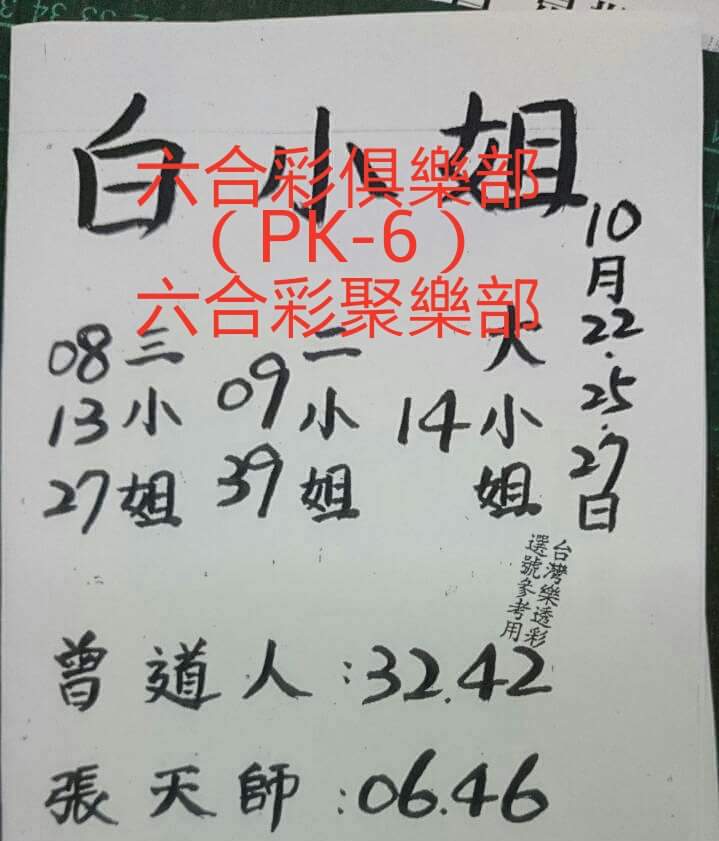 白小姐
六合彩俱樂部
（PK-6）
六合彩聚樂部
10月22.25.27日
大小姐
14
二小姐
09
39
三小姐
08
13
27
台灣樂透彩
選號參考用
曾道人:32.42
張天師:06.46